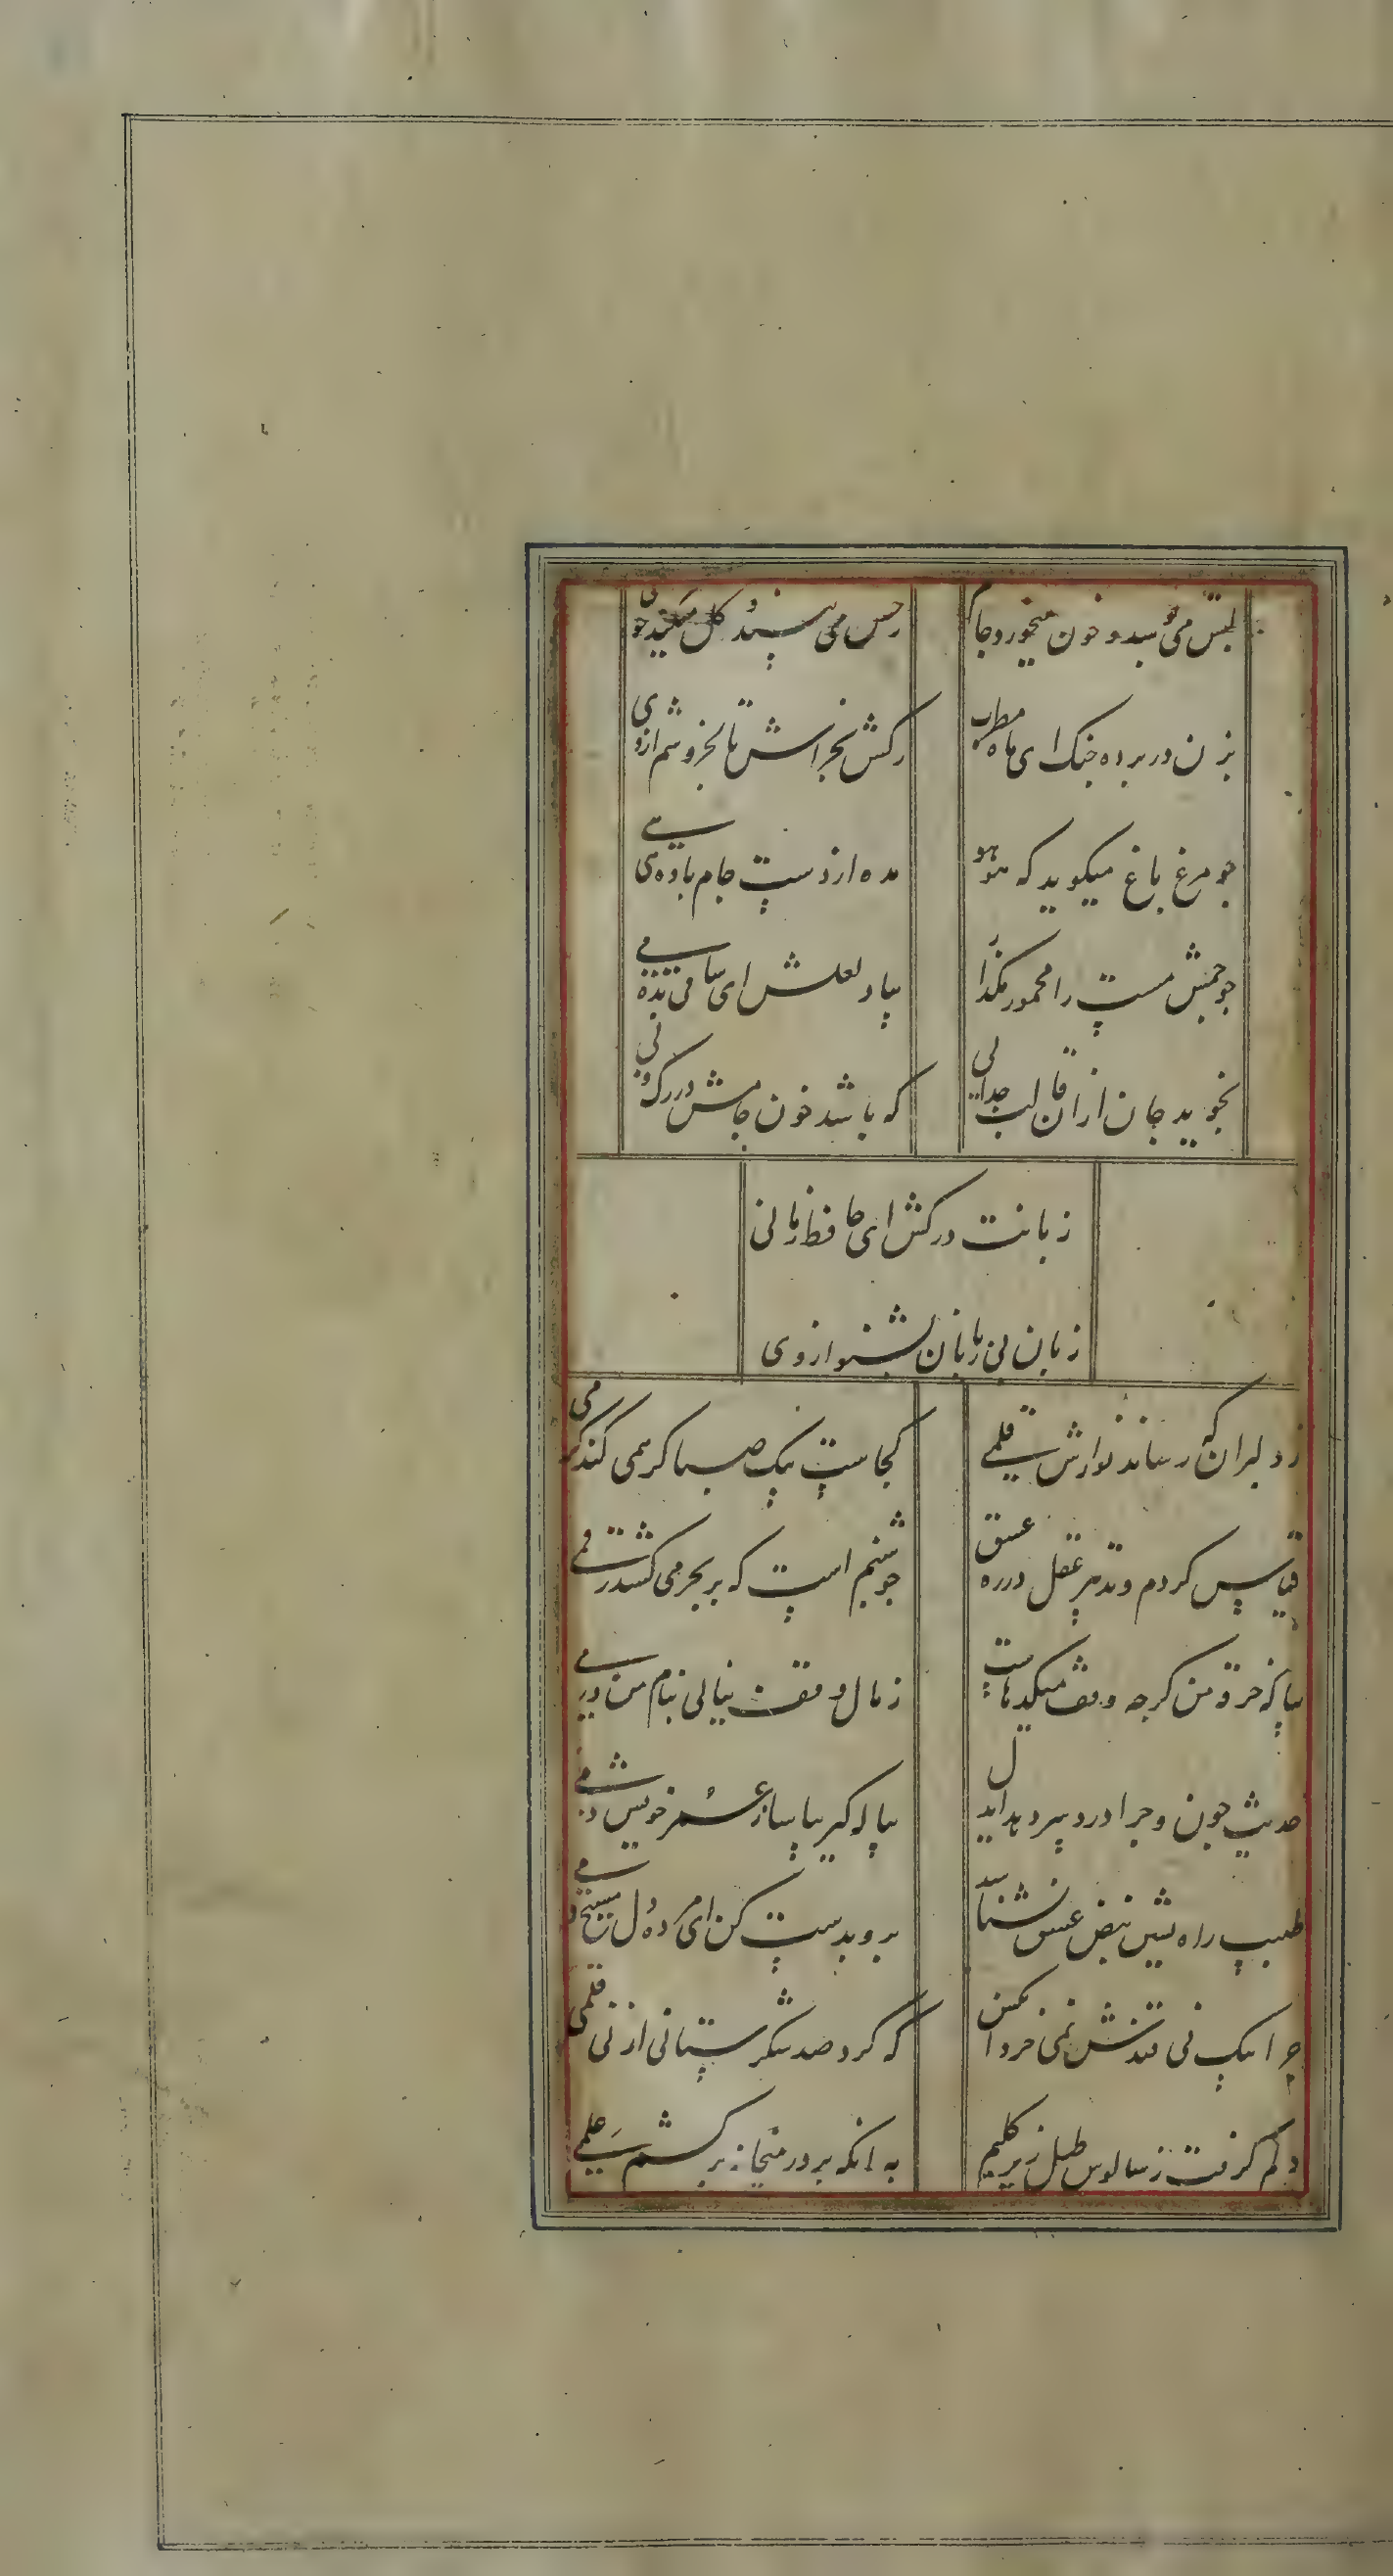 لبش می بوسد و خون میخورد جام
رخس می بیند و کل میکند خوی
بزن در برده جنک ای ماه مطرب
رکش بخراش تا بخروشم از وی
جو مرغ باغ میکوید که هو هو
مده از دست جام باده می
جو جمش مست را مخمور مکذار
بیاد لعلش ای ساقی بده می
نجوید جان از ان قالب جدایی
که باشد خون جامش در رک و پی
زبانت درکش ای حافظ زمانی
زبان بی زبانان بشنو از وی
ز دلبران که رساند نوازش قلمی
کجاست پیک صبا کر همی کند کرمی
قیاس کردم و تدبیر عقل در ره عشق
جو شبنم است که بر بحر می کشد رقمی
بیا که خرقه من کرجه وقف میکدهاست
ز مال وقف نیابی بنام من درمی
حدیث جون و جرا درد سر دهد ای دل
پیاله کیر بیاسا ز عمر خویش دمی
طبیب راه نشین نبض عشق نشناسد
برو بدست کن ای مرده دل مسیح دمی
جرا بیک نی قندش نمی خرد انکس
که کرد صد شکرستانی از نی قلمی
دلم کرفت ز سالوس طبل زیر کلیم
به انکه بر در میخانه برکشم علمی